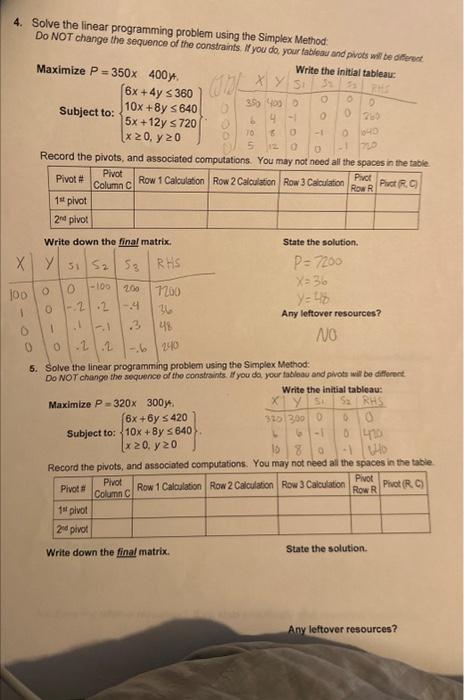 4. Solve the linear programming problem using the Simplex Method:
Do NOT change the sequence of the constraints. If you do, your tableau and pivots will be different.
Maximize P = 350x 400y,
Write the initial tableau:
Subject to: { 6x + 4y ≤ 360
10x + 8y ≤ 640
5x + 12y ≤ 720
x ≥ 0, y ≥ 0 }
X Y S1 S2 S3 RHS
350 400 0 0 0 0
6 4 -1 0 0 360
10 8 0 -1 0 640
5 12 0 0 -1 720
Record the pivots, and associated computations. You may not need all the spaces in the table.
Pivot # Pivot Column C Row 1 Calculation Row 2 Calculation Row 3 Calculation Pivot Row R Pivot (R, C)
1st pivot
2nd pivot
Write down the final matrix.
State the solution.
X Y S1 S2 S3 RHS
100 0 0 -100 200 7200
1 0 -.2 .2 -.4 36
0 1 .1 -.1 .3 48
0 0 .2 .2 -.6 240
P=7200
X=36
Y=48
Any leftover resources?
NO
5. Solve the linear programming problem using the Simplex Method:
Do NOT change the sequence of the constraints. If you do, your tableau and pivots will be different.
Maximize P = 320x 300y,
Write the initial tableau:
Subject to: { 6x + 6y ≤ 420
10x + 8y ≤ 640
x ≥ 0, y ≥ 0 }.
X Y S1 S2 RHS
320 300 0 0 0
6 6 -1 0 420
10 8 0 -1 640
Record the pivots, and associated computations. You may not need all the spaces in the table.
Pivot # Pivot Column C Row 1 Calculation Row 2 Calculation Row 3 Calculation Pivot Row R Pivot (R, C)
1st pivot
2nd pivot
Write down the final matrix.
State the solution.
Any leftover resources?